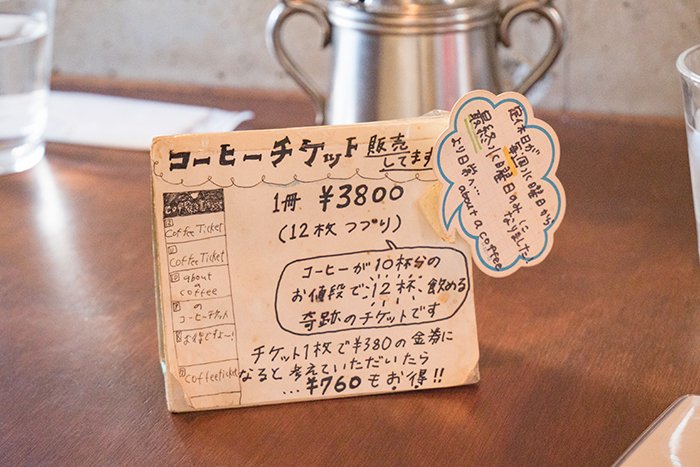 コーヒーチケット 販売
してます
1冊 ¥3800
(12枚 つづり)
コーヒーが10杯分の
お値段で、12杯、飲める
奇跡のチケットです
チケット1枚で¥380の金券に
なると考えていただいたら
...¥760もお得!!
coffee Ticket
coffee Ticket
about
a
coffee
の
コーヒーチケット
お得ですよ〜!
coffee ticket
定休日が
毎週水曜日から
最終水曜日のみに
なりました
より日常へ...
about a coffee